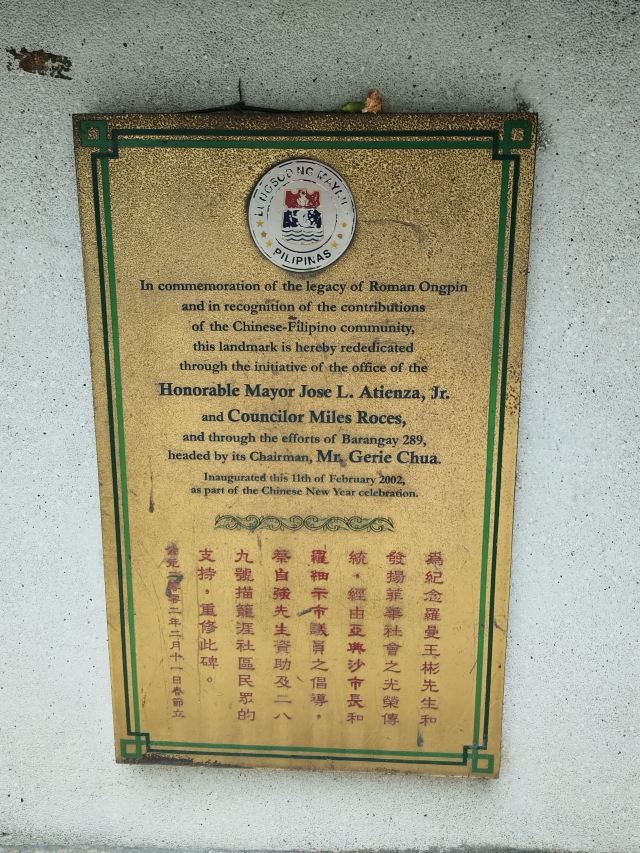 LUNGSOD NG MAYNILA
PILIPINAS
In commemoration of the legacy of Roman Ongpin
and in recognition of the contributions
of the Chinese-Filipino community,
this landmark is hereby rededicated
through the initiative of the office of the
Honorable Mayor Jose L. Atienza, Jr.
and Councilor Miles Roces,
and through the efforts of Barangay 289,
headed by its Chairman, Mr. Gerie Chua.
Inaugurated this 11th of February 2002,
as part of the Chinese New Year celebration.
爲紀念羅曼王彬先生和
發揚菲華社會之光榮傳
統，經由亞典沙市長和
羅細示市議員之倡導，
蔡自強先生資助及二八
九號描籠涯社區民眾的
支持，重修此碑。
公元二零零二年二月十一日春節立